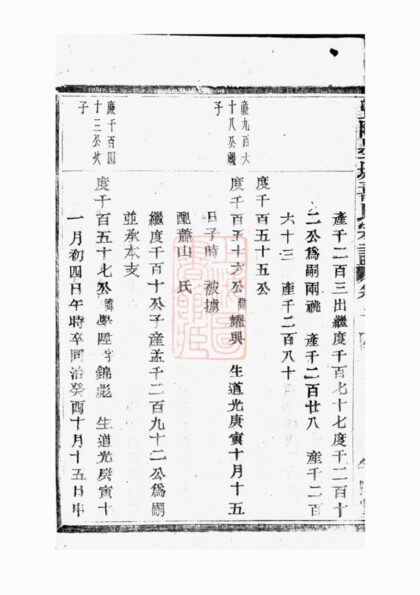 產千二百三出繼度千百七十七度千二百十
二公為嗣兩祧 產千二百廿八 產千二百
六十三 產千二百八十
度千百五十五公
嚴九百六
十八公繼
子
度千百五十六公諱耀興 生道光庚寅十月十五
日子時 被擄
配蕭山 氏
繼度千百十公子產孟千二百九十二公為嗣
並承本支
廉千百四
十三公次
子
度千百五十七公諱學陞字錦彪 生道光庚寅十
一月初四日午時卒同治癸酉十月十五日申